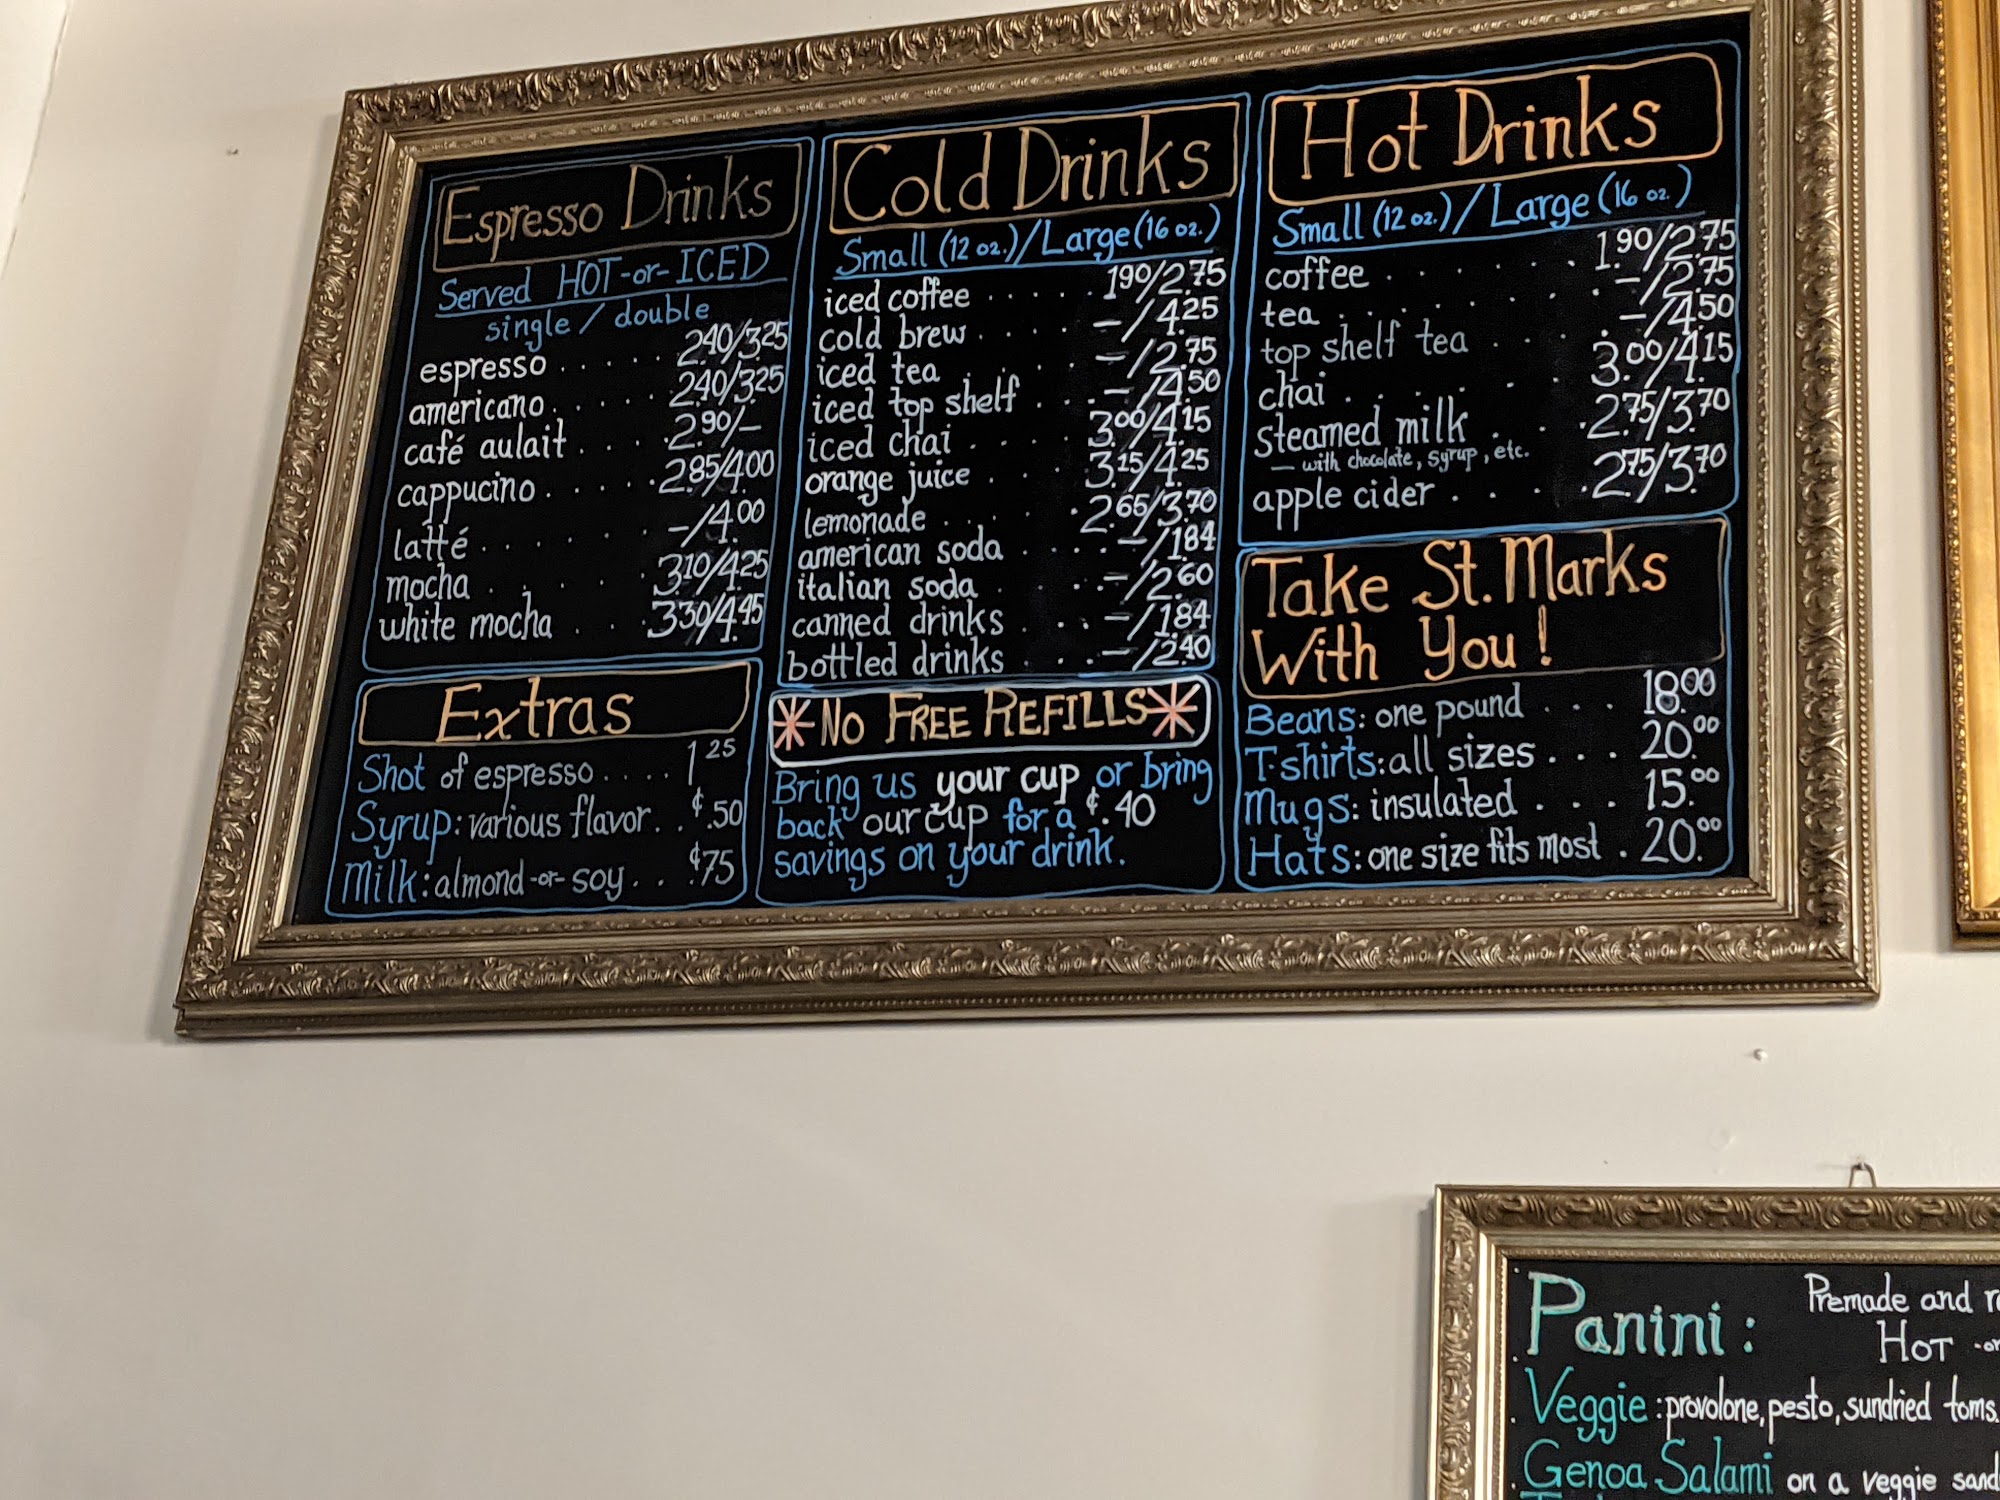 Espresso Drinks
Served HOT -or- ICED
single / double
espresso . . . . 2.40/3.25
americano . . . . . 2.40/3.25
café aulait . . . 2.90/-
cappucino . . . . . 2.85/4.00
latté . . . . . -/4.00
mocha . . . . 3.10/4.25
white mocha . . . 3.30/4.45
Extras
Shot of espresso . . . . 1.25
Syrup: various flavor. . ¢.50
Milk: almond -or- soy . . ¢.75
Cold Drinks
Small (12 oz.)/Large (16 oz.)
iced coffee . . . . . 1.90/2.75
cold brew . . . . -/4.25
iced tea . . . . -/2.75
iced top shelf . . . -/4.50
iced chai . . . . 3.00/4.15
orange juice . . 3.15/4.25
lemonade . . . . . 2.65/3.70
american soda . . . . -/1.84
italian soda . . . -/2.60
canned drinks . . . -/1.84
bottled drinks . . . . -/2.40
*NO FREE REFILLS*
Bring us your cup or bring
back our cup for a ¢.40
savings on your drink.
Hot Drinks
Small (12 oz.)/Large (16 oz.)
coffee . . . . . . 1.90/2.75
tea . . . . . . -/2.75
top shelf tea . . . . -/4.50
chai . . . . . 3.00/4.15
steamed milk . . . 2.75/3.70
— with chocolate, syrup, etc.
apple cider . . . . 2.75/3.70
Take St. Marks
With You!
Beans: one pound . . . 18.00
T-shirts: all sizes . . . 20.00
Mugs: insulated . . . 15.00
Hats: one size fits most . 20.00
Panini: Premade and
HOT
Veggie: provolone, pesto, sundried toms.
Genoa Salami on a veggie